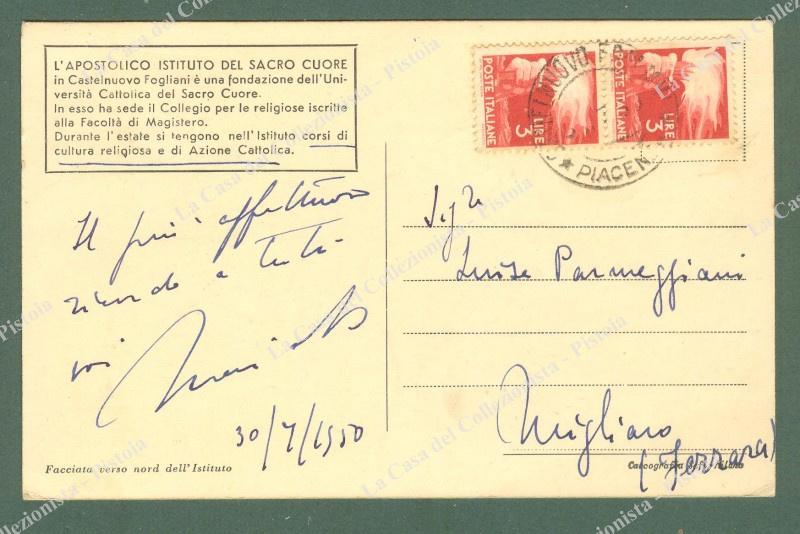 L'APOSTOLICO ISTITUTO DEL SACRO CUORE
in Castelnuovo Fogliani è una fondazione dell'Uni-
versità Cattolica del Sacro Cuore.
In esso ha sede il Collegio per le religiose iscritte
alla Facoltà di Magistero.
Durante l'estate si tengono nell'Istituto corsi di
cultura religiosa e di Azione Cattolica.
POSTE ITALIANE
LIRE 3
POSTE ITALIANE
LIRE 3
PIACEN
Il più affettuoso
ricordo a tutti
voi
30/7/1950
Sig.ra
Luisa Parmeggiani
Migliaro
(Ferrara)
Facciata verso nord dell'Istituto
La Casa del Collezionista - Pistoia